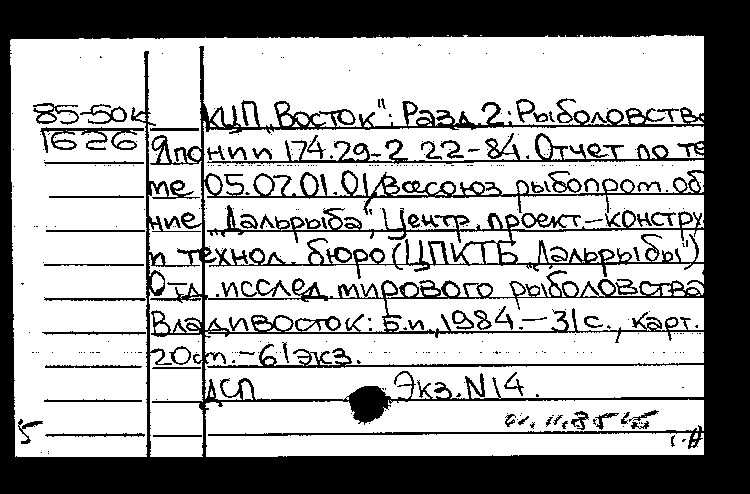 85-50к КЦП „Восток“: Разд. 2: Рыболовство
1626 Японии 174.29-2 22-84. Отчет по те-
ме 05.07.01.01/Всесоюз рыбопром. об-
ние „Дальрыба“, Центр. проект.-констру
и технол. бюро (ЦПКТБ „Дальрыбы“)
Отд. исслед. мирового рыболовства
Владивосток: Б.и., 1984. - 31 с., карт.
20см. - 61экз.
ДСП Экз. N14.
5